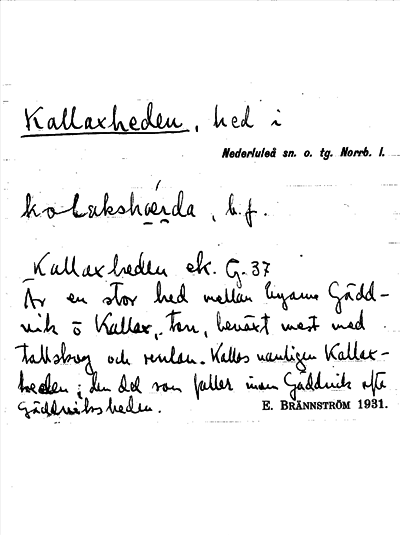 Kallaxheden, hed i
Nederluleå sn. o. tg. Norrb. l.
kɒLakshæ̀rda, b.f.
Kallaxheden ek. G. 37
Är en stor hed mellan byarna Gädd-
vik o Kallax, torr, beväxt mest med
tallskog och renlav. Kallas vanligen Kallax-
heden; den del som faller inom Gäddvik ofta
Gäddviksheden.
E. BRÄNNSTRÖM 1931.